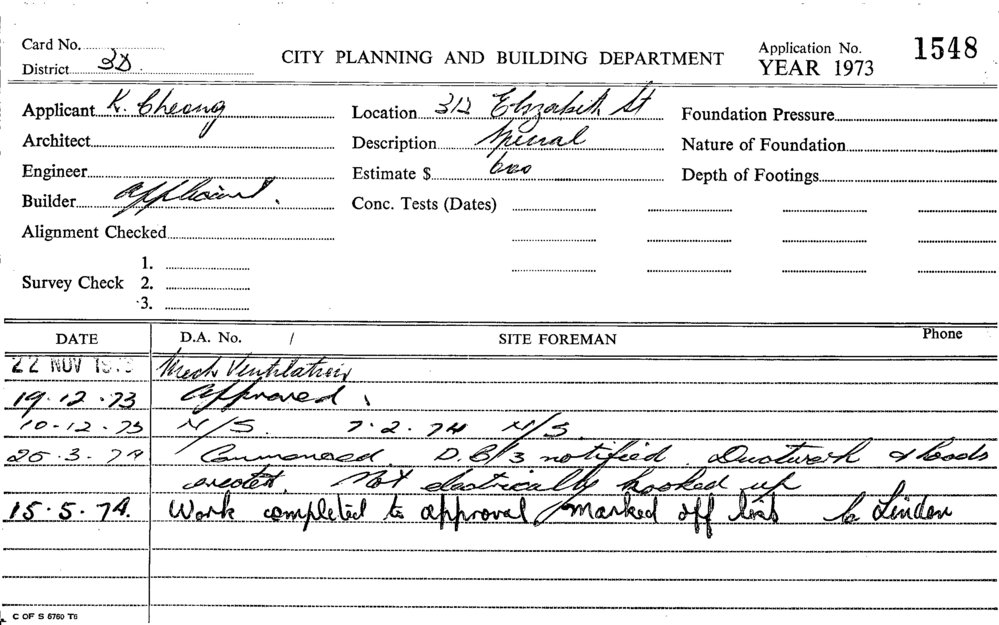 Card No.
District 3D.
CITY PLANNING AND BUILDING DEPARTMENT
Application No. 1548
YEAR 1973
Applicant K. Cheong
Architect
Engineer
Builder Applicant.
Alignment Checked
Survey Check 1.
2.
3.
Location 312 Elizabeth St
Description Special
Estimate $ 600
Conc. Tests (Dates)
Foundation Pressure
Nature of Foundation
Depth of Footings
DATE D.A. No. / SITE FOREMAN Phone
22 NOV 1973 Mech Ventilation
19.12.73 Approved.
10-12-73 N/S. 7-2-74 N/S
25.3.74 Commenced D.B/3 notified. Ductwork & hoods
erected. Not electrically hooked up
15.5.74. Work completed to approval marked off list Linden
C OF S 5760 T6